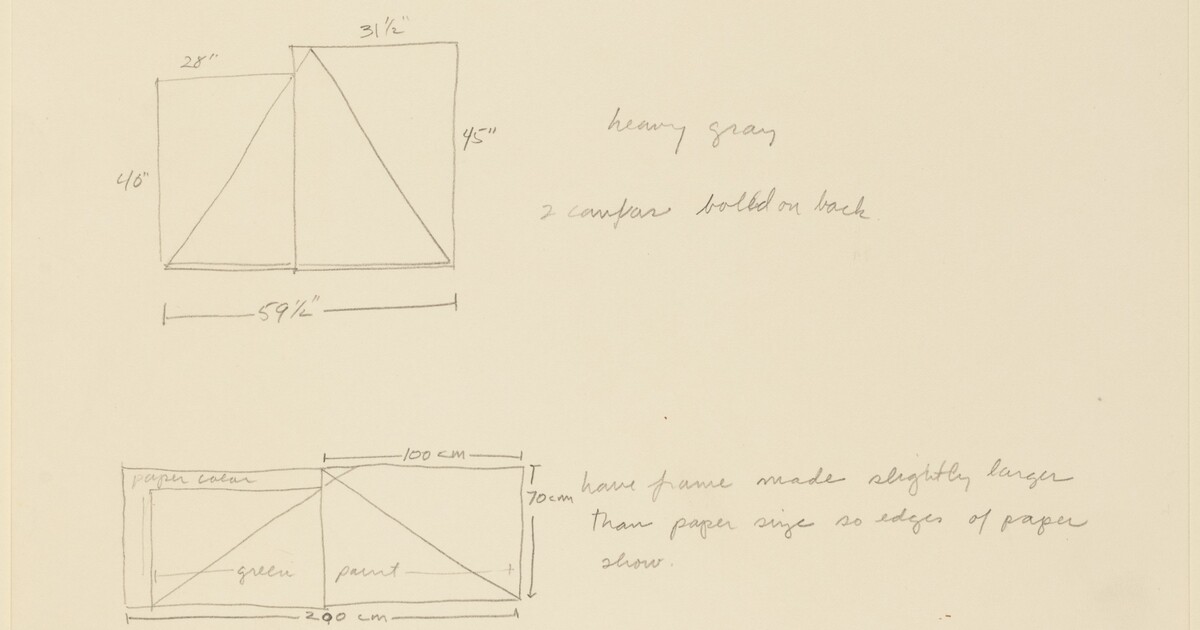 31½"
28"
45"
40"
heavy gray
2 canvas bolted on back
59½"
100 cm
paper color
70cm
have frame made slightly larger
than paper size so edges of paper
show.
green paint
200 cm